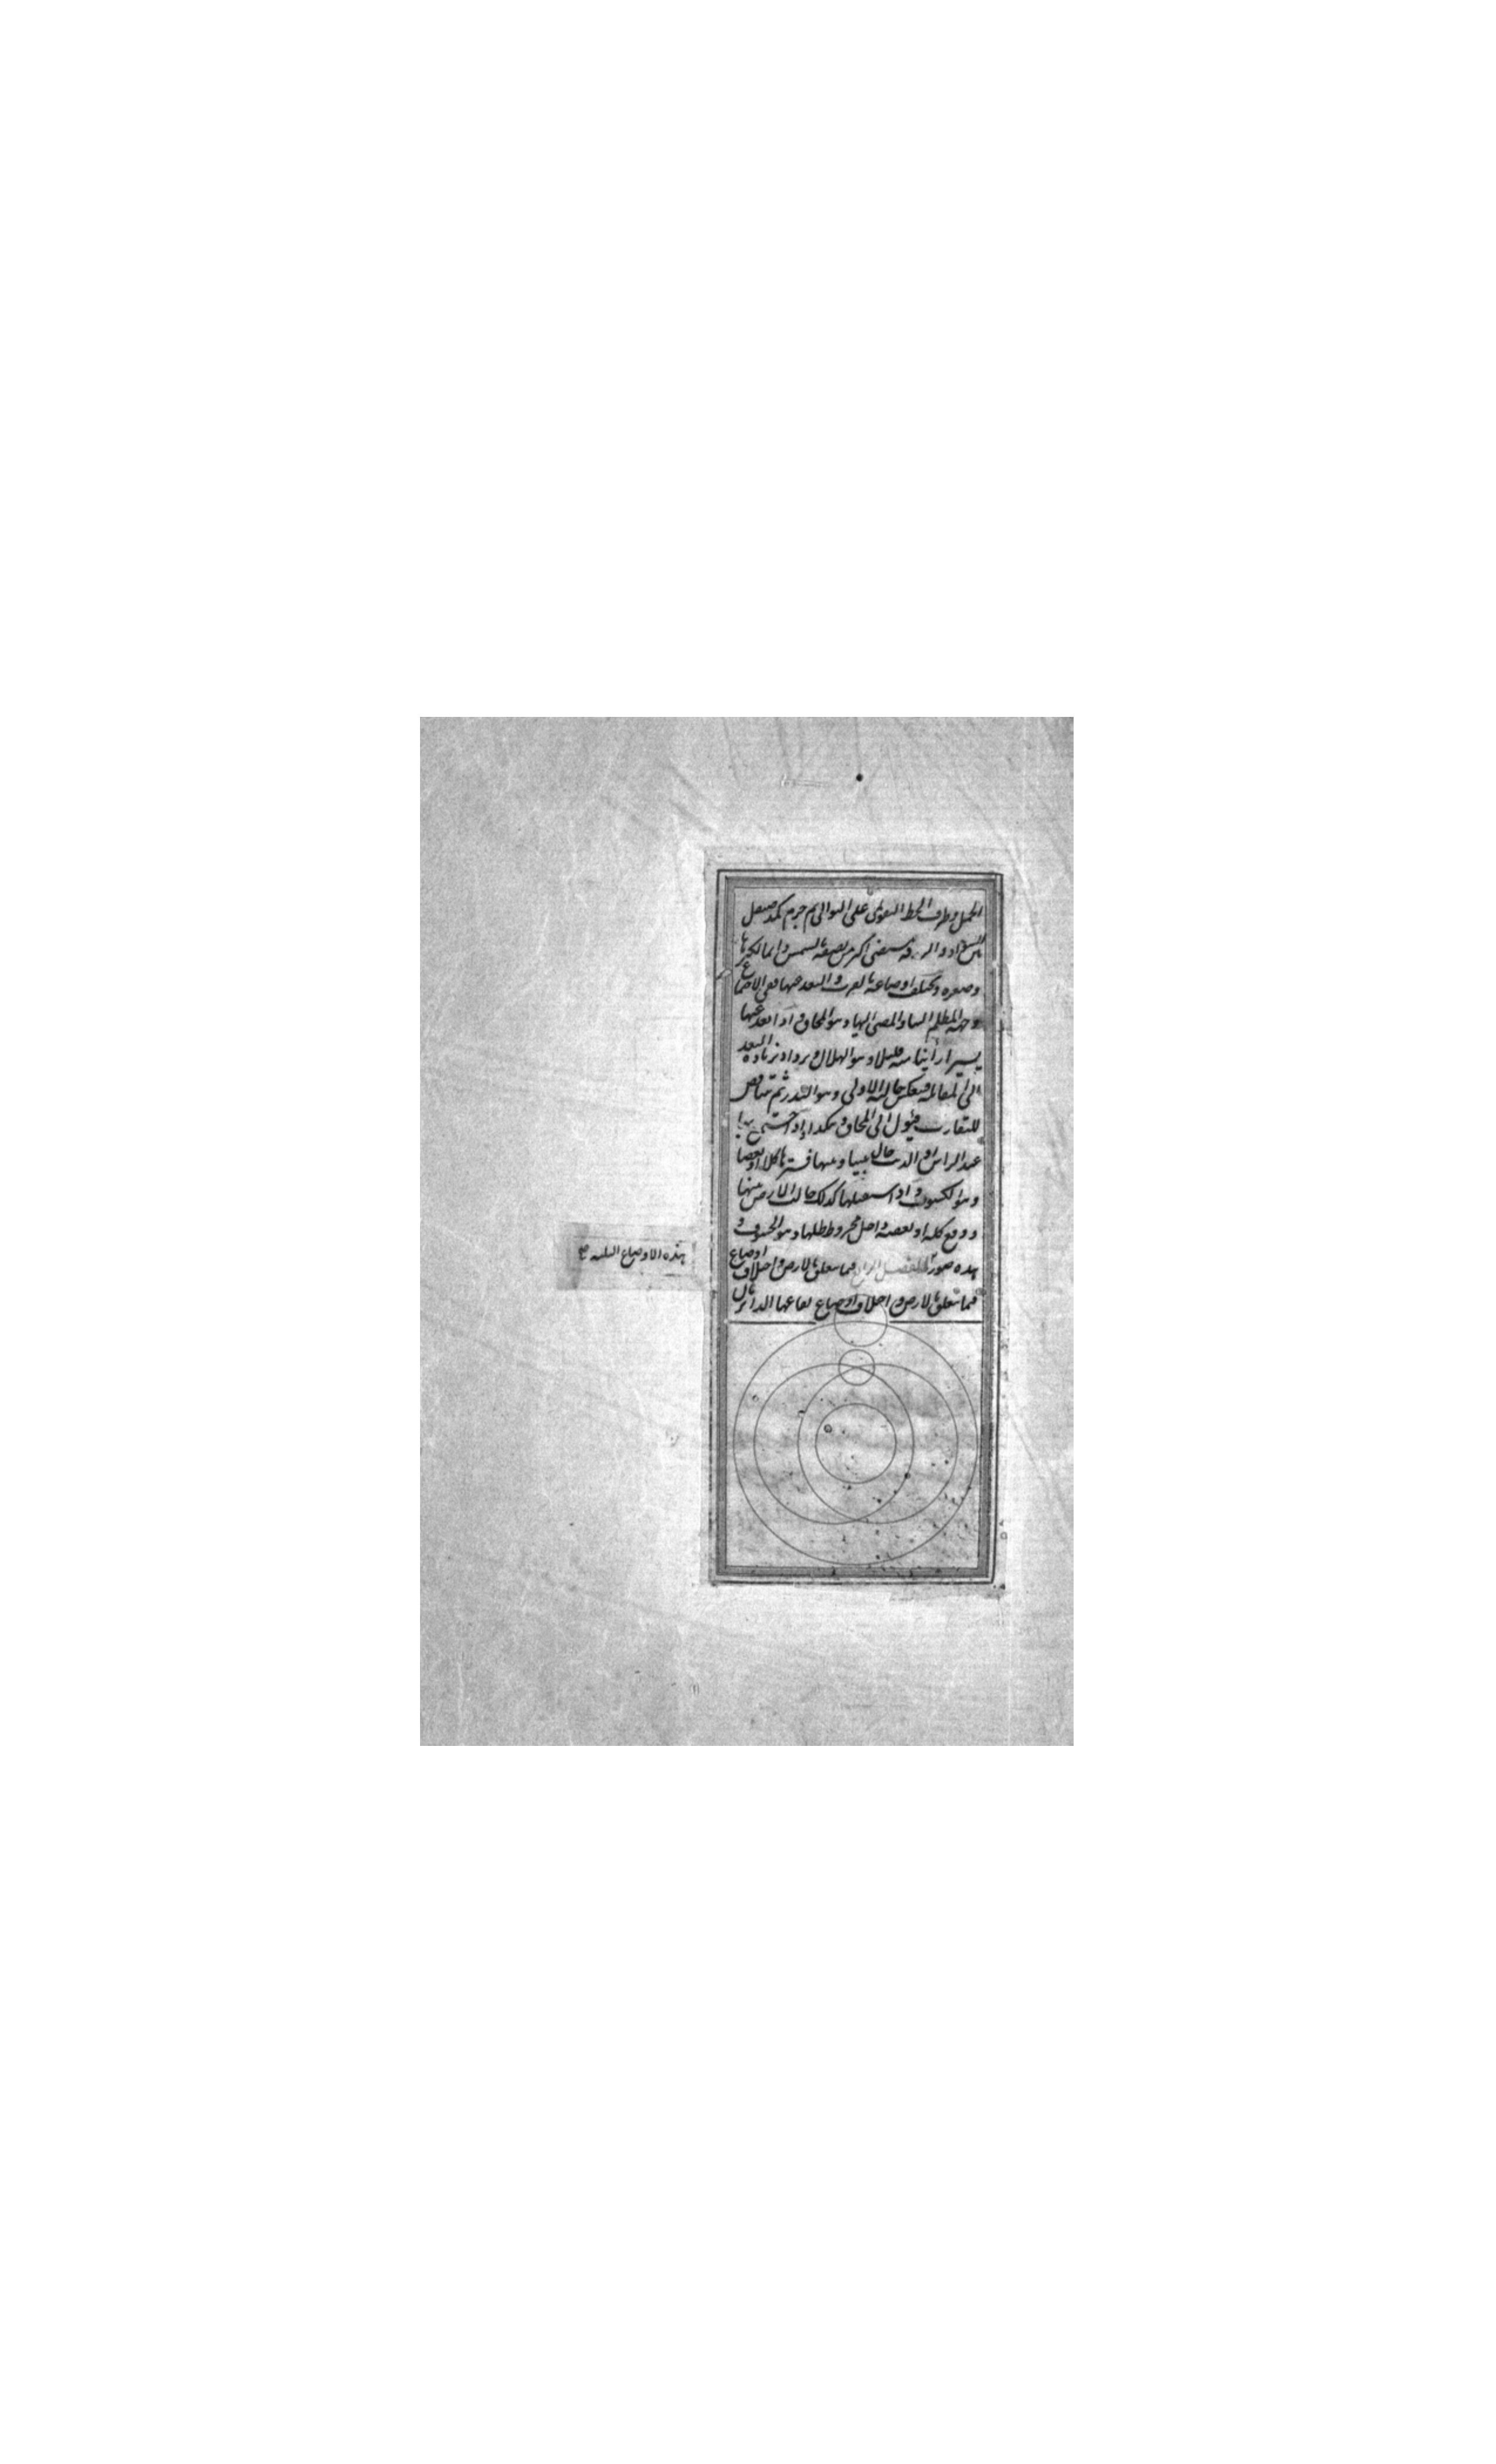 الحمل وطرف الخط التقويمى على التوالى ثم جرم كمد صقيل
فيستضى اكثر من نصفه بالشمس دايما لكبرها
وصغره وتختلف اوضاعه بالقرب والبعد عنها ففى الاجتماع
وجهه المظلم الينا والمضى اليها وهو المحاق واذا بعد عنها
يسيرا راينا منه قليلا وهو الهلال ويزداد بزيادة البعد
الى المقابلة فينعكس حاله الاولى وهو البدر ثم يتناقص
للتقارب فيؤل الى المحاق وهكذا واذا اجتمع بها
عند الراس او الذنب حال بيننا وبينها فسترها كلا او بعضا
وهو الكسوف واذا استقبلها كذلك حالت الارض بينهما
ووقع كله او بعضه داخل مخروط ظلها وهو الخسوف و
هذه صورة الفصل الرابع فيما يتعلق بالارض واختلاف اوضاع
فيما يتعلق بالارض واختلاف اوضاع بقاعها الدائرتان
هذه الاوضاع الثلثة صح